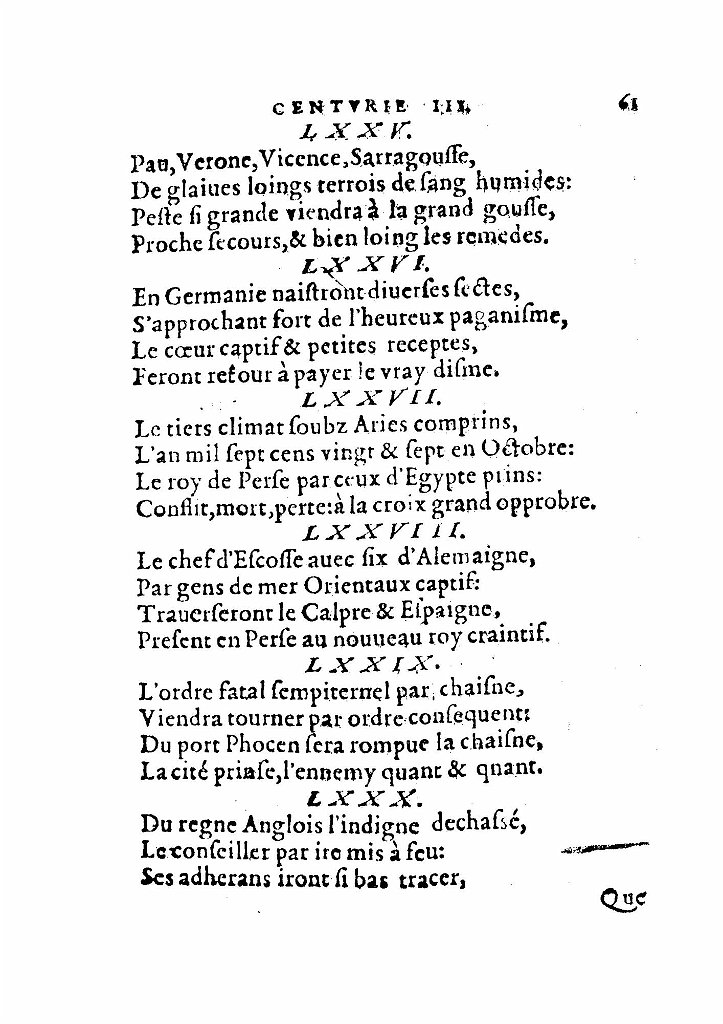 CENTVRIE III. 61
LXXV.
Pau,Verone,Vicence,Sarragouſſe,
De glaiues loings terrois de ſang humides:
Peſte ſi grande viendra à la grand gouſſe,
Proche ſecours,& bien loing les remedes.
LXXVI.
En Germanie naiſtront diuerſes ſectes,
S'approchant fort de l'heureux paganiſme,
Le cœur captif & petites receptes,
Feront retour à payer le vray diſme.
LXXVII.
Le tiers climat ſoubz Aries comprins,
L'an mil ſept cens vingt & ſept en Octobre:
Le roy de Perſe par ceux d'Egypte prins:
Conflit,mort,perte:à la croix grand opprobre.
LXXVIII.
Le chef d'Eſcoſſe auec ſix d'Alemaigne,
Par gens de mer Orientaux captif:
Trauerſeront le Calpre & Eſpaigne,
Preſent en Perſe au nouueau roy craintif.
LXXIX.
L'ordre fatal ſempiternel par chaiſne,
Viendra tourner par ordre conſequent:
Du port Phocen ſera rompue la chaiſne,
La cité prinſe,l'ennemy quant & quant.
LXXX.
Du regne Anglois l'indigne dechaſsé,
Le conſeiller par ire mis à feu:
Ses adherans iront ſi bas tracer,
Que